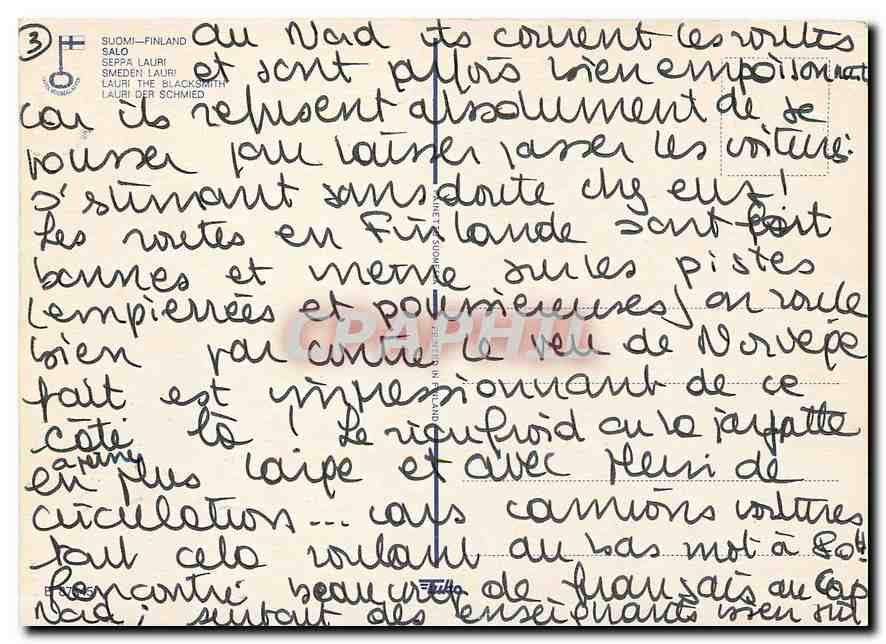 3
SUOMI—FINLAND
SALO
SEPPÄ LAURI
SMEDEN LAURI
LAURI THE BLACKSMITH
LAURI DER SCHMIED
au Nord ils couvent les routes
et sont parfois bien empoisonnant
car ils refusent absolument de se
pousser pour laisser passer les voitures:
s'estimant sans doute chez eux!
Les routes en Finlande sont fort
bonnes et meme sur les pistes
(empierrées et poussiereuses) on roule
bien par contre le peu de Norvège
fait est impressionnant de ce
côté là! Le au la
en à peine plus large et avec de
circulation... cars camions voitures
tout cela roulant au bas mot à 80
Rencontré beaucoup de français au Cap
Nord; surtout des enseignants bien sûr
PRINTED IN FINLAND
CPAPHIL